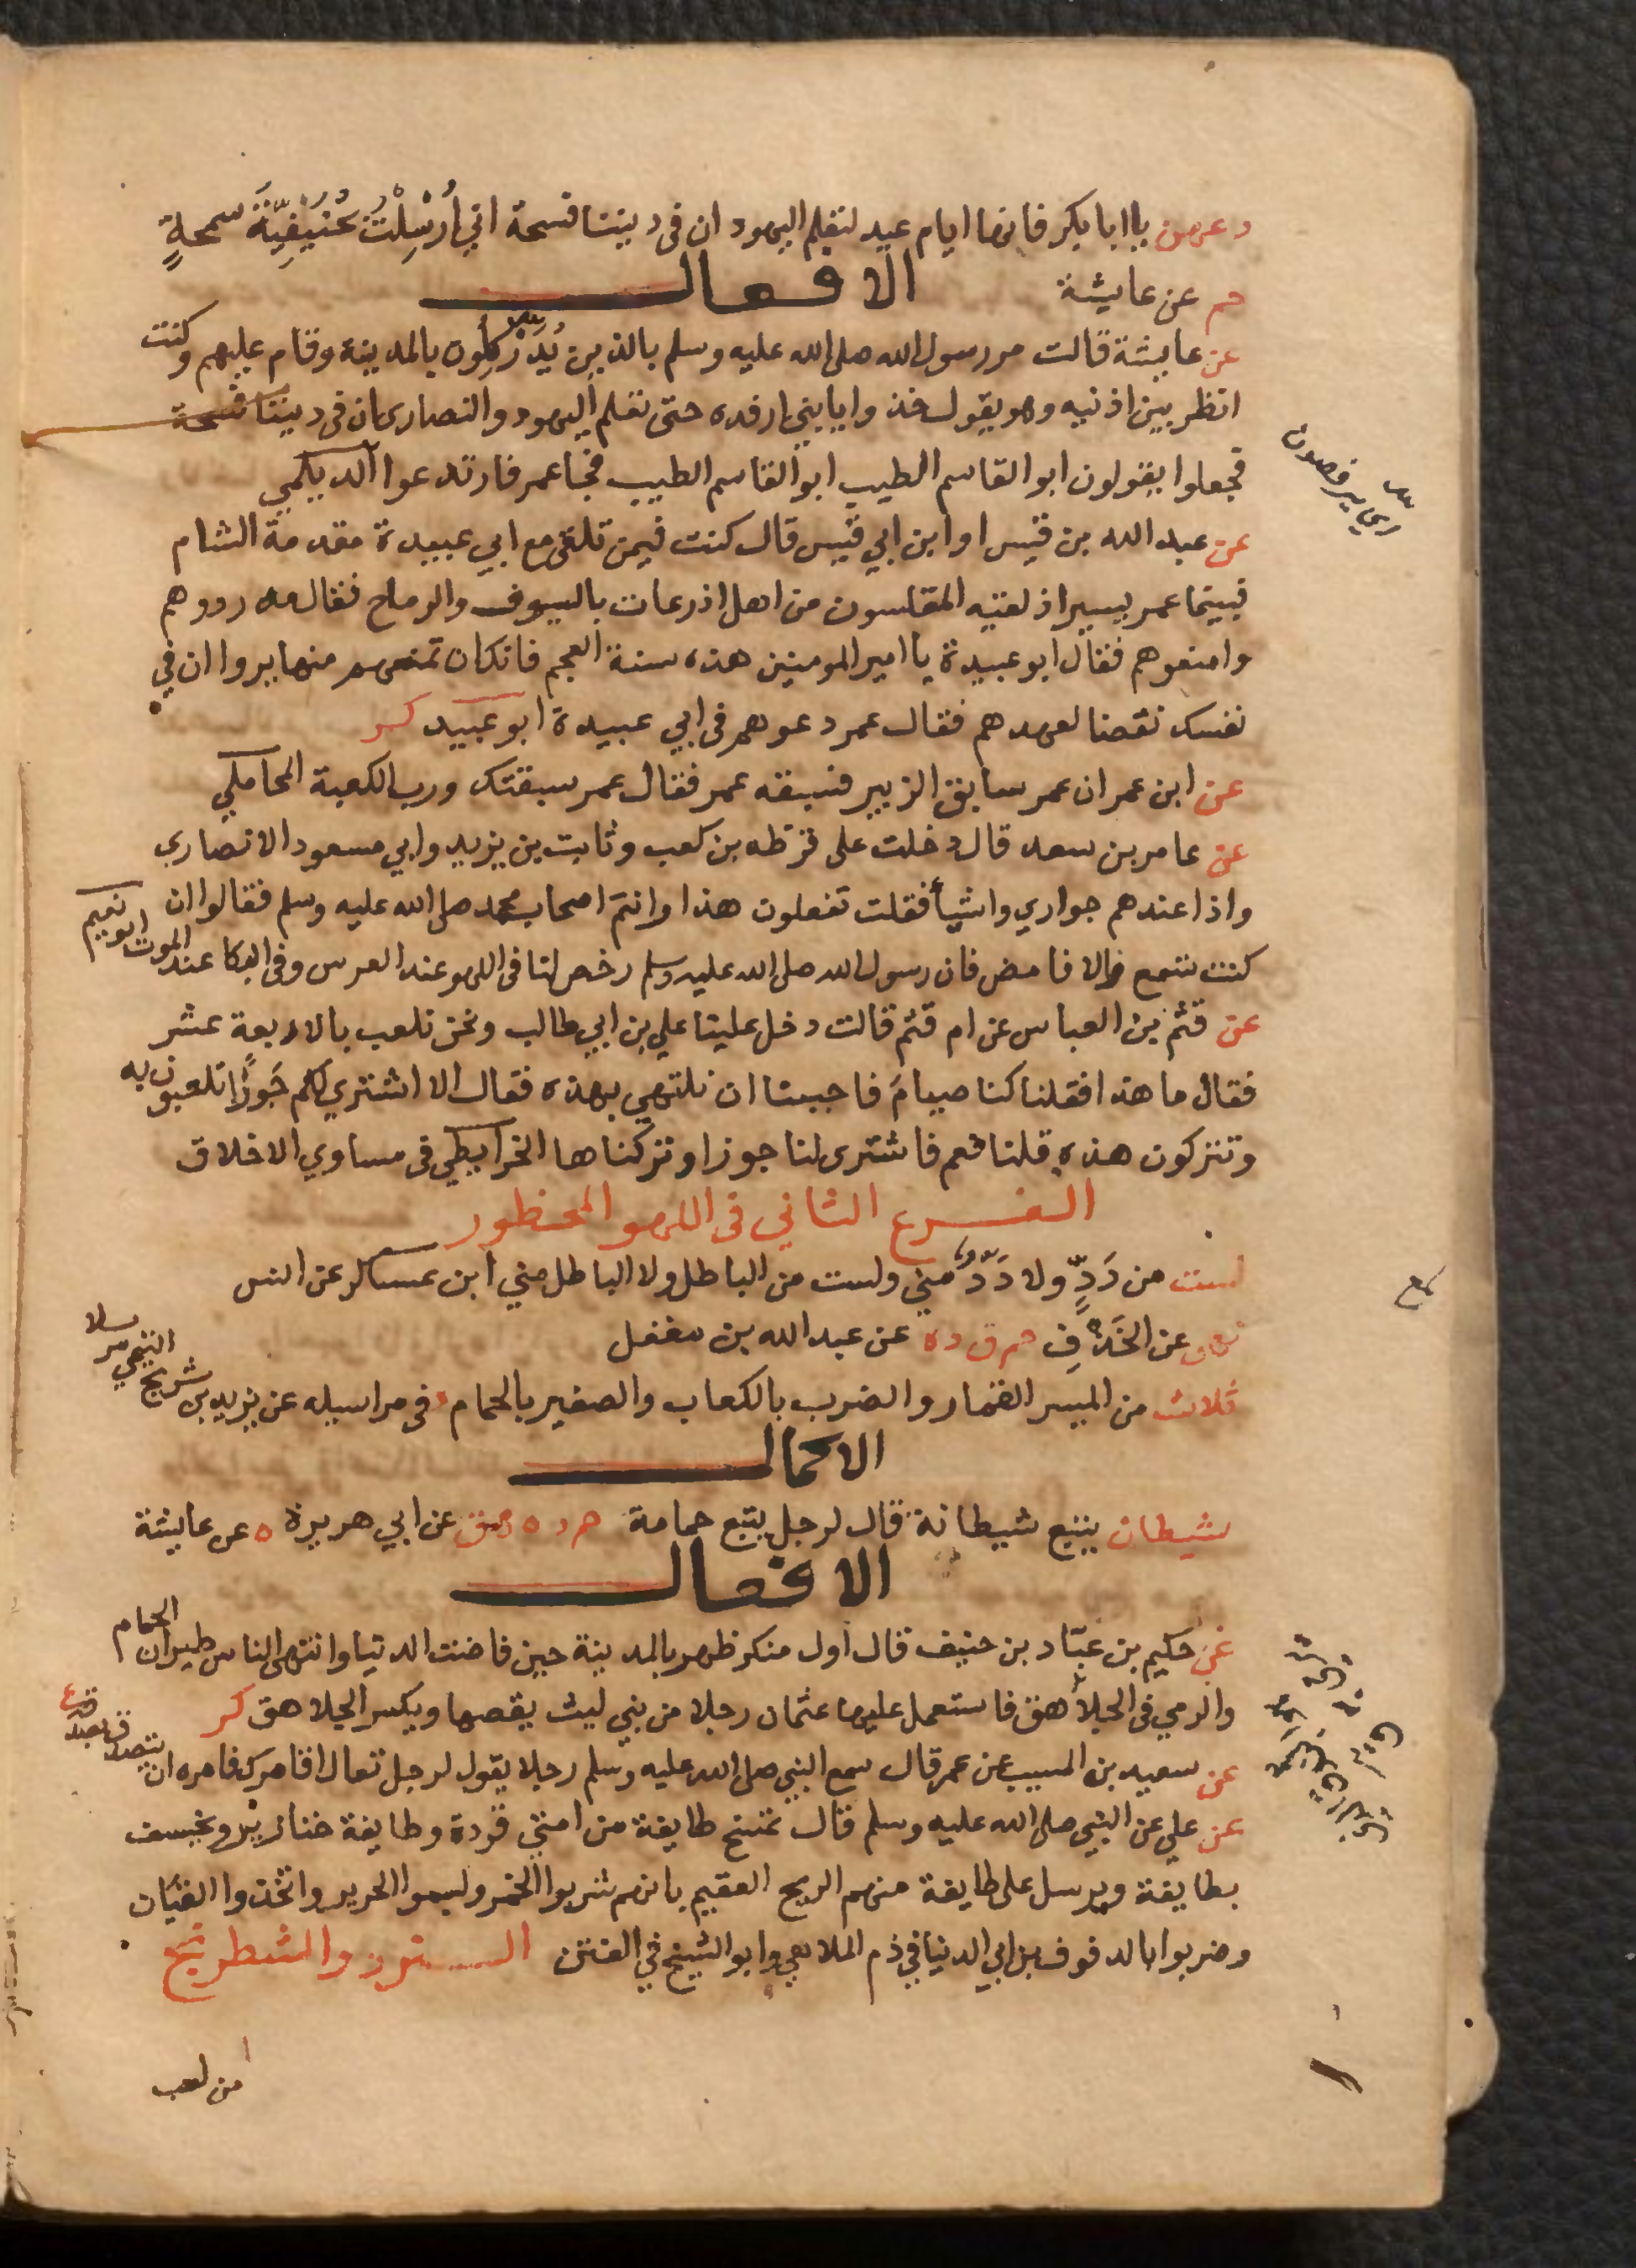 دعهن يا ابا بكر فانها ايام عيد لتعلم اليهود ان فى ديننا فسحة اني أُرْسِلْتُ بحُنيفِيّةَ سمحةٍ
حم عن عايشة
الافعال
عن عايشة قالت مر رسول الله صلى الله عليه وسلم بالذين يُدَرْكِلون بالمدينة وقام عليهم وكنت
انظر بين اذنيه وهو يقول خذوا يا بني ارفده حتى تعلم اليهود والنصارى ان فى ديننا فسحة
فجعلوا يقولون ابو القاسم الطيب ابو القاسم الطيب فجا عمر فارتدعوا الديلمي
عن عبد الله بن قيس او ابن ابي قيس قال كنت فيمن تلقى مع ابي عبيدة مقدمة الشام
فبينما عمر يسير اذ لقيه المقلسون من اهل اذرعات بالسيوف والرماح فقال مه ردوهم
وامنعوهم فقال ابو عبيدة يا امير المومنين هذه سنة العجم فانك ان تمنعهم منها يروا ان في
نفسك نقضا لعهدهم فقال عمر دعوهم فى ابي عبيدة ابو عبيد كر
عن ابن عمر ان عمر سابق الزبير فسبقه عمر فقال عمر سبقتك ورب الكعبة المحاملي
عن عامر بن سعد قال دخلت على قرظه بن كعب وثابت بن يزيد وابي مسعود الانصاري
واذا عندهم جواري واشيأ فقلت تفعلون هذا وانتم اصحاب محمد صلى الله عليه وسلم فقالوا ان
كنت تسمع والا فامض فان رسول الله صلى الله عليه وسلم رخص لنا فى اللهو عند العرس وفى البكا عند الموت ابو نعيم
عن قثم بن العباس عن ام قثم قالت دخل علينا علي بن ابي طالب ونحن نلعب بالاربعة عشر
فقال ما هذا فقلنا كنا صيام فاحببنا ان نلتهي بهذه فقال الا اشتري لكم جَوزًا تلعبون به
وتتركون هذه قلنا نعم فاشترى لنا جوزا وتركناها الخرايطي فى مساوي الاخلاق
الفرع الثاني فى اللهو المحظور
لست من دَدٍّ ولا دَدٌّ مني ولست من الباطل ولا الباطل مني ابن عساكر عن انس
نهى عن الخَذْفِ حم ق د ه عن عبد الله بن مغفل
ثلاث من الميسر القمار والضرب بالكعاب والصفير بالحمام د فى مراسيله عن يزيد بن شريح التيمي مرسلا
الاكمال
شيطان يتبع شيطانة قال لرجل يتبع حمامة حم د ه هق عن ابي هريرة ه عن عايشة
الافعال
عن حكيم بن عبّاد بن حنيف قال اول منكر ظهر بالمدينة حين فاضت الدنيا وانتهى الناس طيران الحمام
والرمي فى الجلاهق فاستعمل عليها عثمان رجلا من بني ليث يقصها ويكسر الجلاهق كر
عن سعيد بن المسيب عن عمر قال سمع النبي صلى الله عليه وسلم رجلا يقول لرجل تعال اقامرك فامره ان يتصدق بصدقة ع
عن علي عن النبي صلى الله عليه وسلم قال تمسخ طايفة من امتي قردة وطايفة خنازير ويخسف
بطايفة ويرسل على طايفة منهم الريح العقيم بانهم شربوا الخمر ولبسوا الحرير واتخذوا القيان
وضربوا بالدفوف بن ابي الدنيا في ذم الملاهي وابو الشيخ في الفتن النرد والشطرنج
من لعب
اي يرقصون